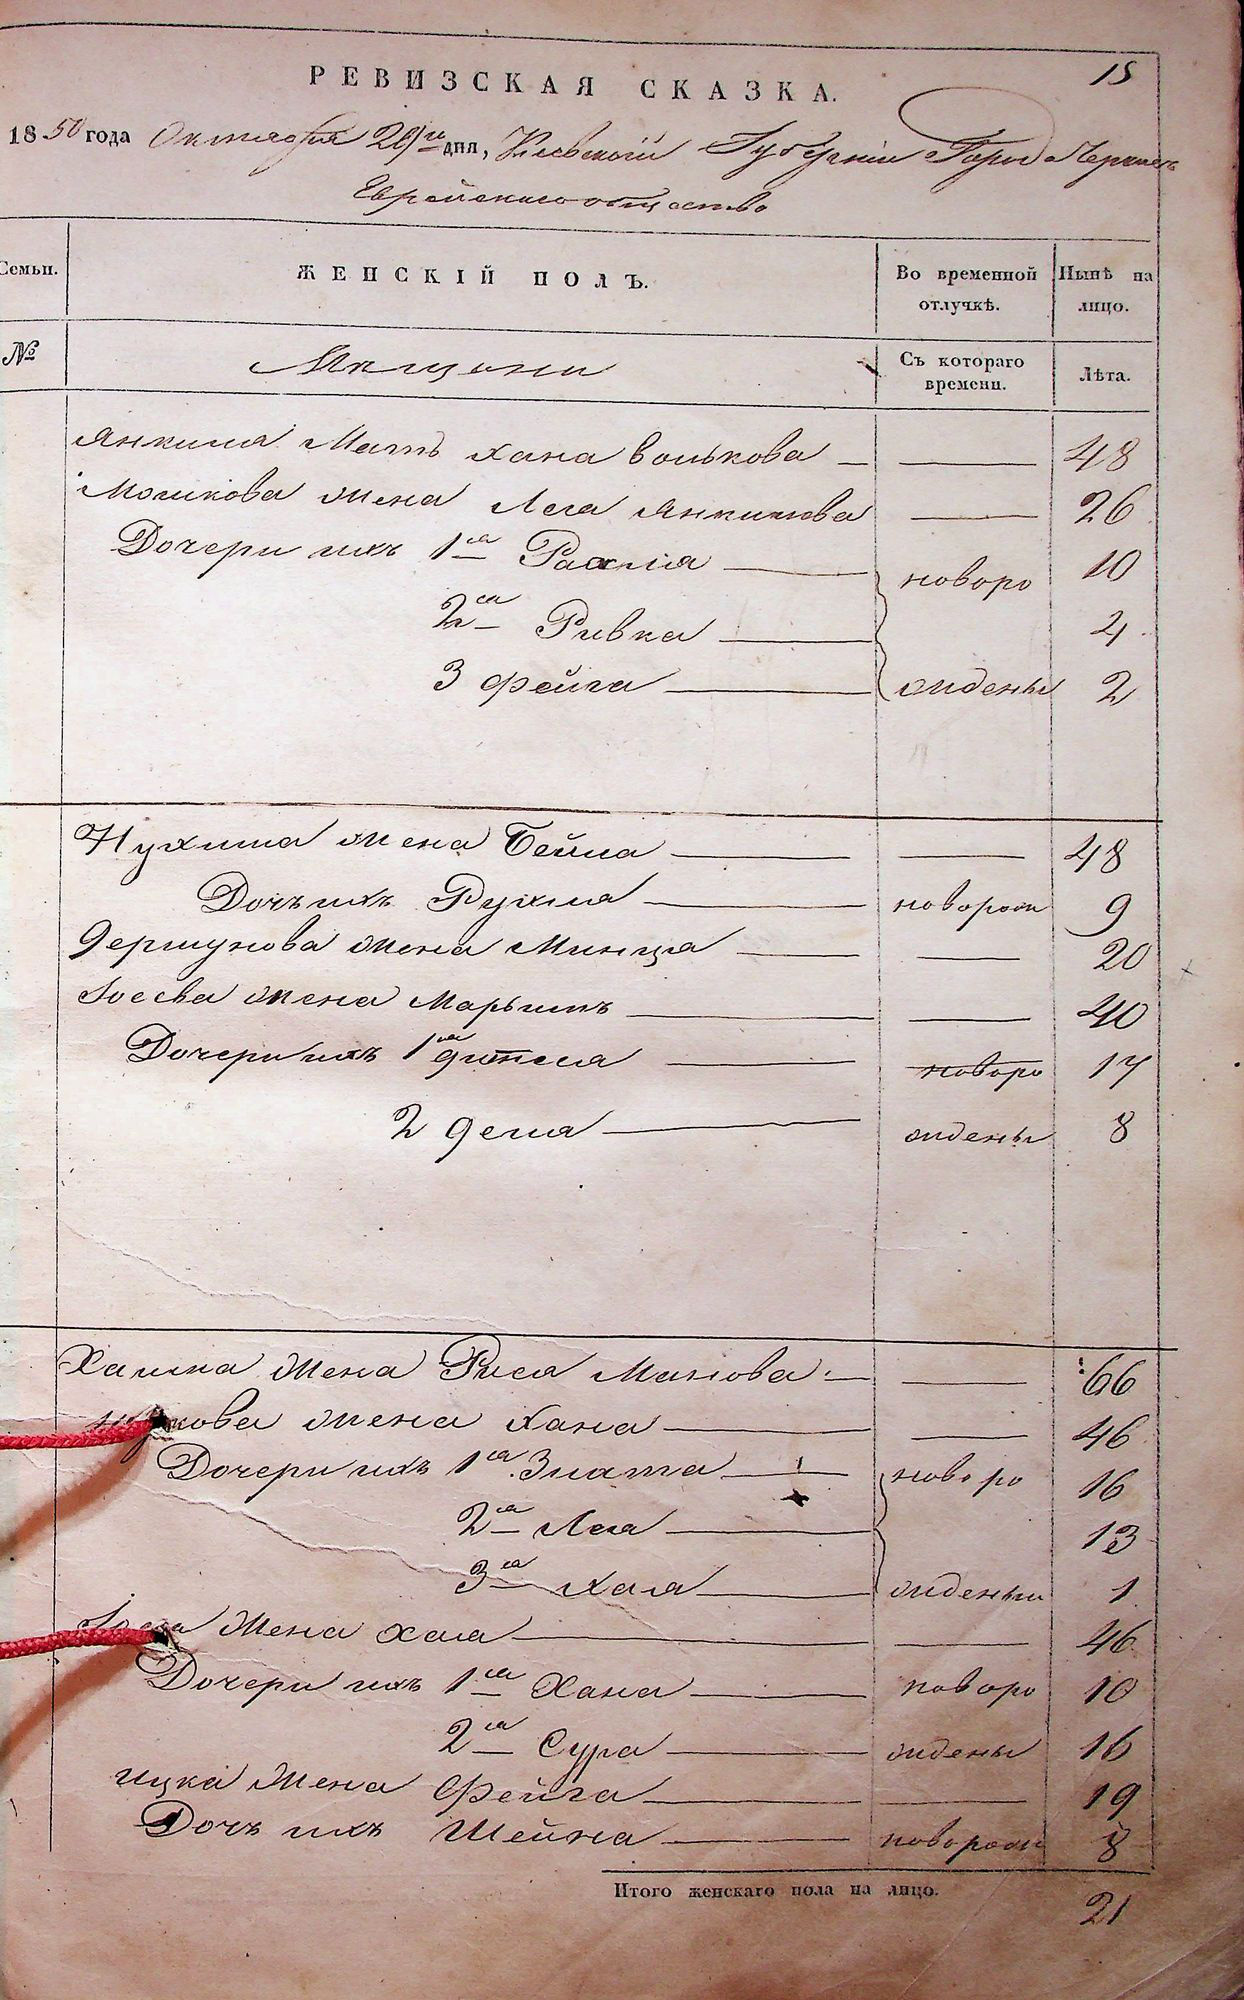 15
РЕВИЗСКАЯ СКАЗКА.
1850 года Октября 29го дня, Киевской Губернии Город Черкас
Еврейского общества
Семьи. ЖЕНСКІЙ ПОЛЪ. Во временной отлучкѣ. Нынѣ на лицо.
№ Мещани Съ котораго времени. Лѣта.
Янкиля Мать Хана Волькова — 48
Мошкова жена Лея Янкилева — 26
Дочери ихъ 1ая Рахля — новоро 10
2ая Ривка — 4
3 Фейга — жденны 2
Нухима жена Бейла — 48
Дочь ихъ Рухля — новорож 9
жена Минца — 20
Иосева жена Марьимъ — 40
Дочери ихъ 1ая — новоро 17
2 — жденны 8
Хаима жена Рися Манова — 66
жена Хана — 46
Дочери ихъ 1ая Злата — новоро 16
2ая Лея — 13
3ая Хая — жденны 1
жена Хая — 46
Дочери ихъ 1ая Хана — новоро 10
2ая Сура — ждены 16
Ицка жена Фейга — 19
Дочь ихъ Шейна — новорож 8
Итого женскаго пола на лицо. 21